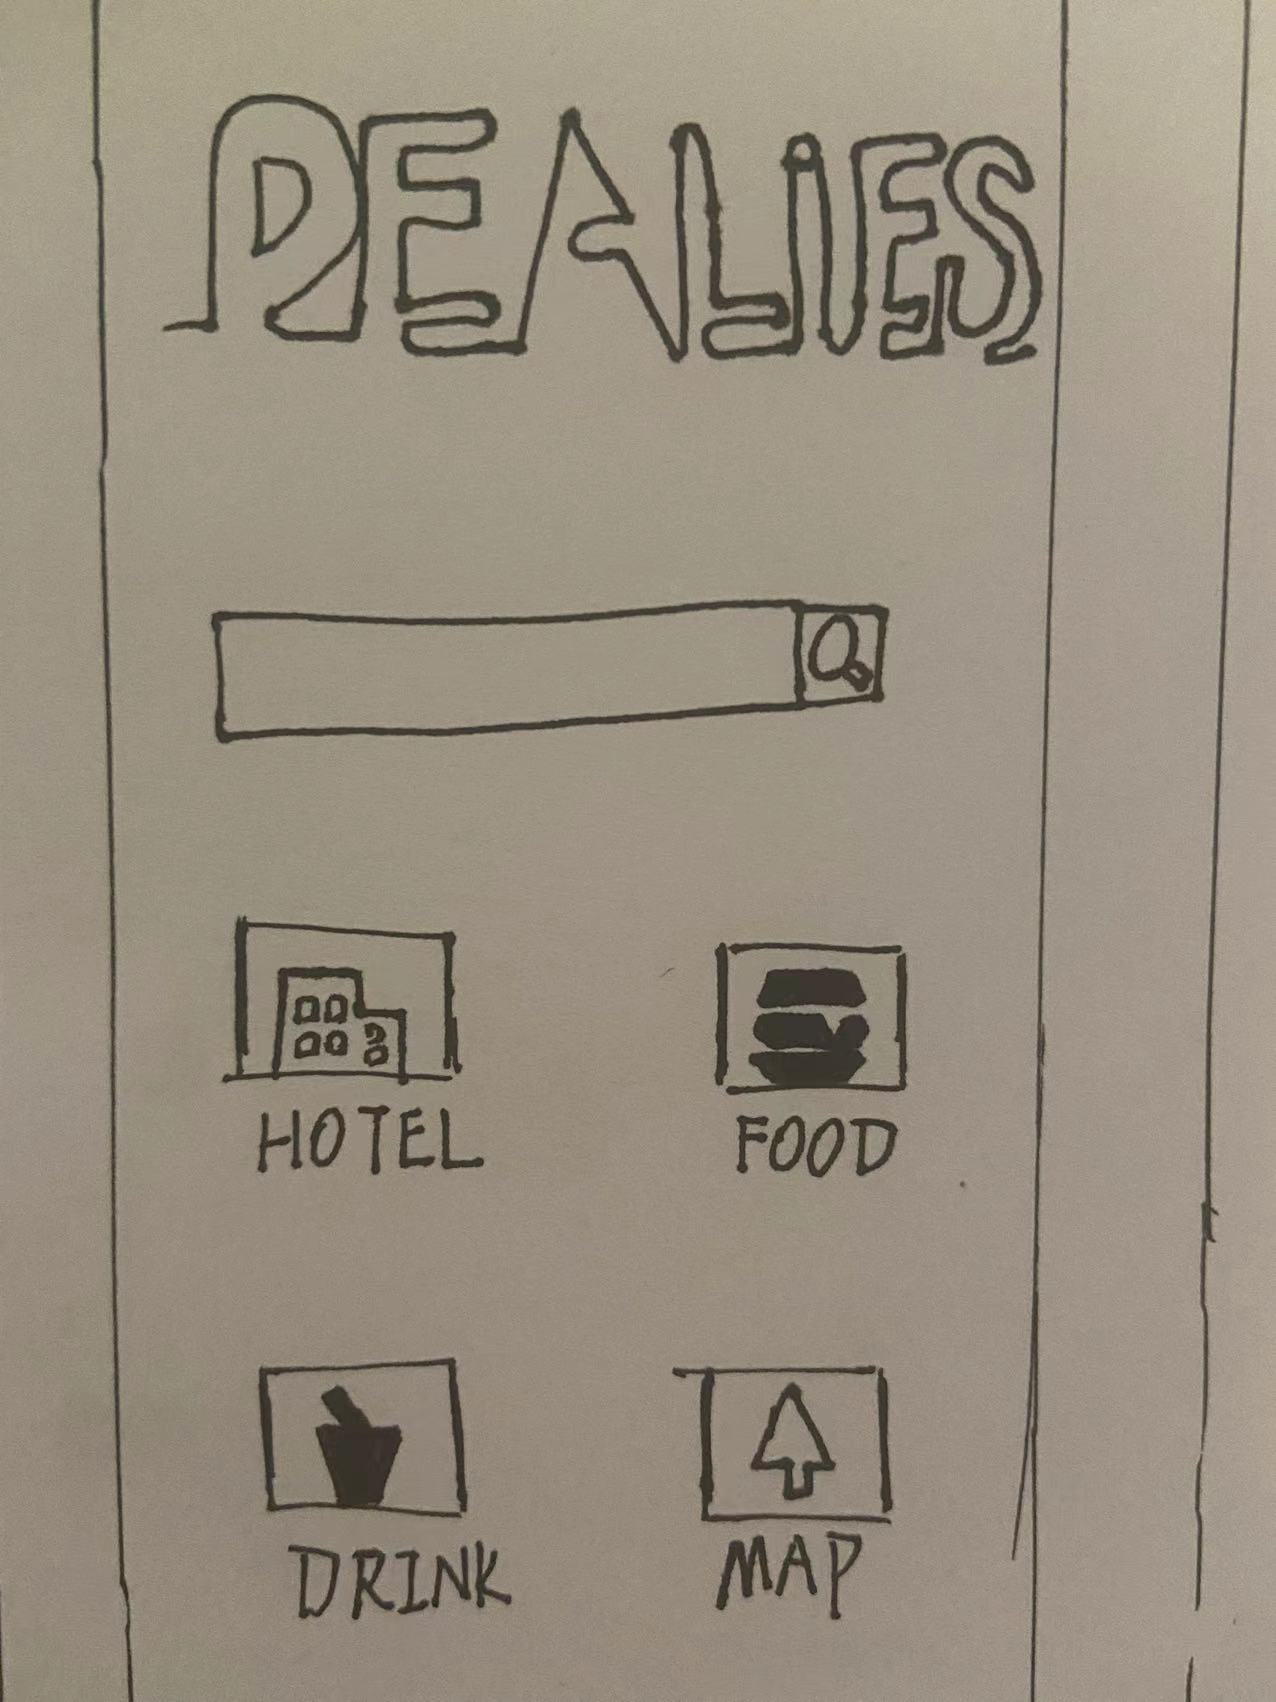 DEALIES
HOTEL
FOOD
DRINK
MAP